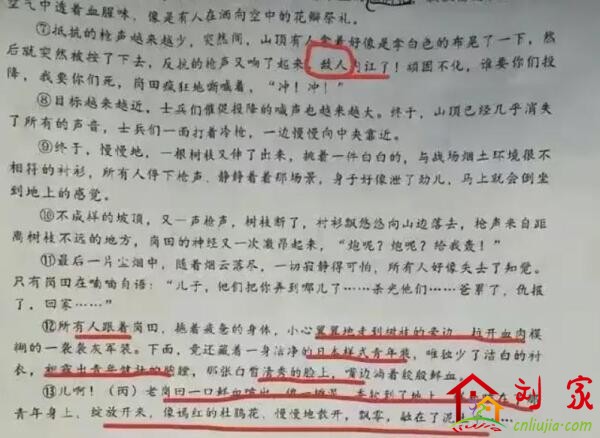 空气中透着血腥味，像是有人在洒向空中的花瓣祭礼。
⑦抵抗的枪声越来越少，突然间，山顶有人拿着好像是李白色的布晃了一下，然
后就突然被按了下去，反抗的枪声又响了起来，敌人内讧了！顽固不化，谁要你们投
降，我要你们死，岗田疯狂地嘶喊着，“冲！冲！”
⑧目标越来越近，士兵们催促投降的喊声也越来越大。终于，山顶已经几乎消失
了所有的声音，士兵们一面打着冷枪，一边慢慢向中央靠近。
⑨终于，慢慢地，一根树枝又伸了出来，挑着一件白白的，与战场烟土环境很不
相符的衬衫，所有人停下枪声、静静看着那场景，身子好像泄了劲儿，马上就会倒坐
到地上的感觉。
⑩不成样的坡顶，又一声枪声，树枝断了，衬衫飘悠悠向山边落去，枪声来自距
离树枝不远的地方，岗田的神经又一次激昂起来，“炮呢？炮呢？给我轰！”
⑪最后一片尘烟中，随着烟云落尽，一切寂静得可怕，所有人好像失去了知觉。
只有岗田在喃喃自语：“儿子，他们把你弄到哪儿了……杀光他们……爸累了，仇报
了，回家……”
⑫所有人跟着岗田，拖着疲惫的身体，小心翼翼地走到树枝的旁边，拉开血肉模
糊的一袭袭灰军装。下面，竟还藏着一身洁净的日本样式青年装，唯独少了洁白的衬
衣，裸露出青年健壮的胸膛，那张白皙清秀的脸上，嘴边淌着殷殷鲜血。
⑬儿啊！（丙）老岗田一口鲜血喷出，像一摊泥，
青年身上，绽放开来，像嫣红的杜鹃花、慢慢地散开，飘零，融在了泥
刘家
cnliujia.com